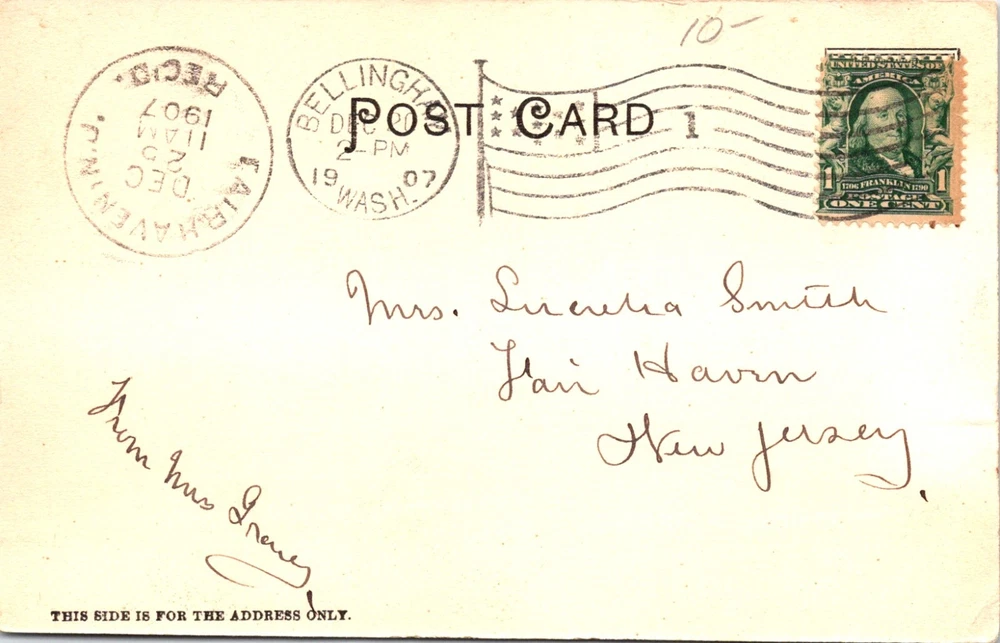 10-
POST CARD
FAIRHAVEN, N.J.
DEC
11 AM
1907
REC'D.
BELLINGHAM
DEC
2-PM
1907
WASH.
1
UNITED STATES OF
AMERICA
1 1
1706 FRANKLIN 1790
POSTAGE
ONE CENT
Mrs. Lucretia Smith
Fair Haven
New Jersey.
From Mrs
THIS SIDE IS FOR THE ADDRESS ONLY.